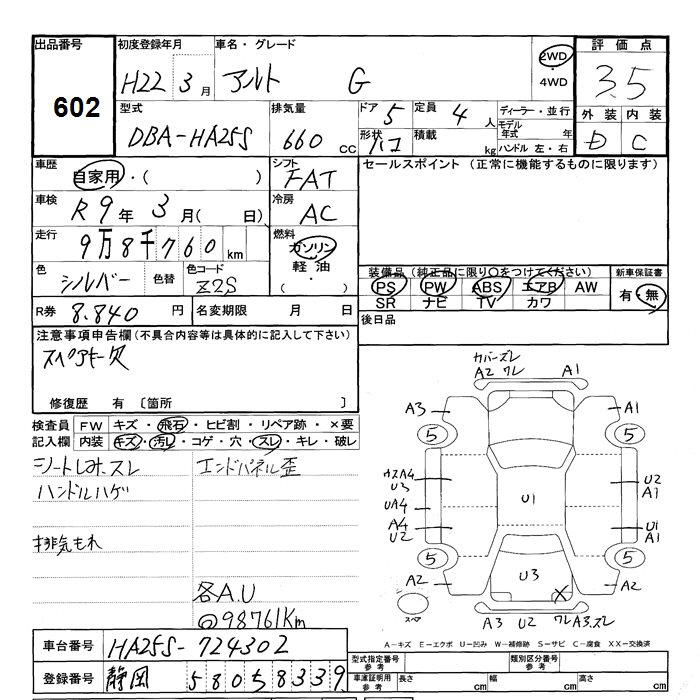 出品番号 初度登録年月 車名・グレード 2WD・4WD 評価点
602 H22 3月 アルト G 3.5
型式 排気量 ドア 5 定員 4人 ディーラー・並行 外装 内装
DBA-HA25S 660 CC 形状 ハコ 積載 kg モデル年式 年 D C
ハンドル 左・右
車歴 自家用・( ) シフト FAT セールスポイント (正常に機能するものに限ります)
車検 R9年 3月( 日) 冷房 AC
走行 9万8千760km 燃料 ガソリン 軽油 ・( )
色 シルバー 色替 色コード Z2S
装備品 (純正品に限り○をつけてください) 新車保証書
PS PW ABS エアB AW 有・無
SR ナビ TV カワ
R券 8.840円 名変期限 月 日 後日品
注意事項申告欄(不具合内容等は具体的に記入して下さい)
スペアキー欠
修復歴 有 〔箇所 〕
検査員記入欄 FW キズ・飛石・ヒビ割・リペア跡・×要
内装 キズ・汚レ・コゲ・穴・スレ・キレ・破レ
シートしみ、スレ エンドパネル歪
ハンドルハゲ
排気もれ
各A.U
@98761Km
カバーズレ
A2 ワレ A1
A3 A1
5 5
A3
U3
U2
A1
U1
UA4
A4
U2
U1
A1
5 5
A2 U3 X A2
スペア A3 U2 ワレ A3.ズレ
A-キズ E-エクボ U-凹み W-補修跡 S-サビ C-腐食 XX-交換済
車台番号 HA25S-724302
登録番号 静岡 580 5 8339
型式指定番号 参考 類別区分番号 参考
車庫証明用 参考 長さ cm 幅 cm 高さ cm